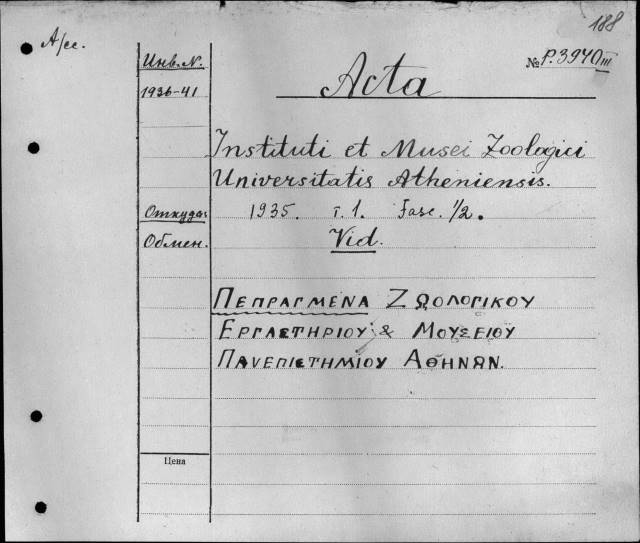 188
А/сс.
Инв. N.
№ P.3940 III
Acta
1936-41
Instituti et Musei Zoologici
Universitatis Atheniensis.
Откуда:
1935. т. 1. Fasc. 1/2.
Обмен.
Vid.
ΠΕΠΡΑΓΜΕΝΑ ΖΩΟΛΟΓΙΚΟΥ
ΕΡΓΑΣΤΗΡΙΟΥ & ΜΟΥΣΕΙΟΥ
ΠΑΝΕΠΙΣΤΗΜΙΟΥ ΑΘΗΝΩΝ.
Цена